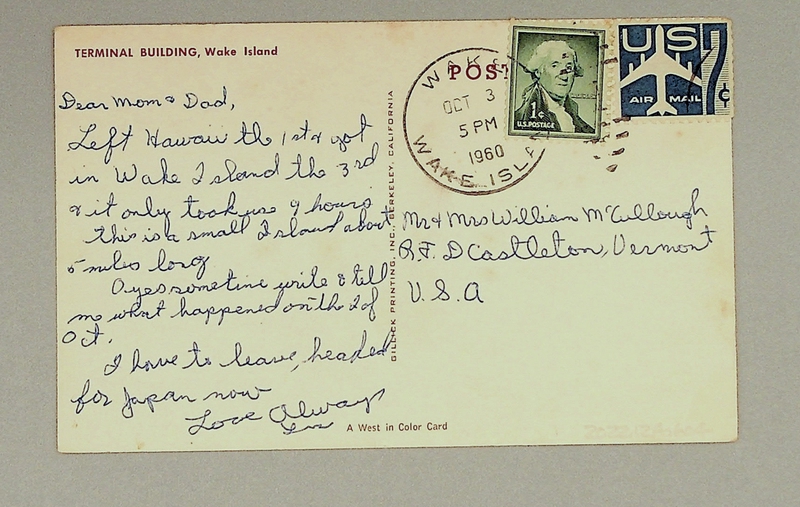 TERMINAL BUILDING, Wake Island
Dear Mom & Dad,
Left Hawaii the 1st & got
in Wake Island the 3rd
& it only took use 9 hours
this is a small Island about
5 miles long
O yes sometime write & tell
me what happened on the 2 of
Oct.
I have to leave, headed
for Japan now
Love Always
A West in Color Card
GILLICK PRINTING, INC., BERKELEY, CALIFORNIA
POST
WAKE
OCT 3
5 PM
1960
WAKE ISLAN
1¢
U.S. POSTAGE
US 7¢
AIR MAIL
Mr & Mrs William McCullough
R.F. D Castleton, Vermont
U.S.A